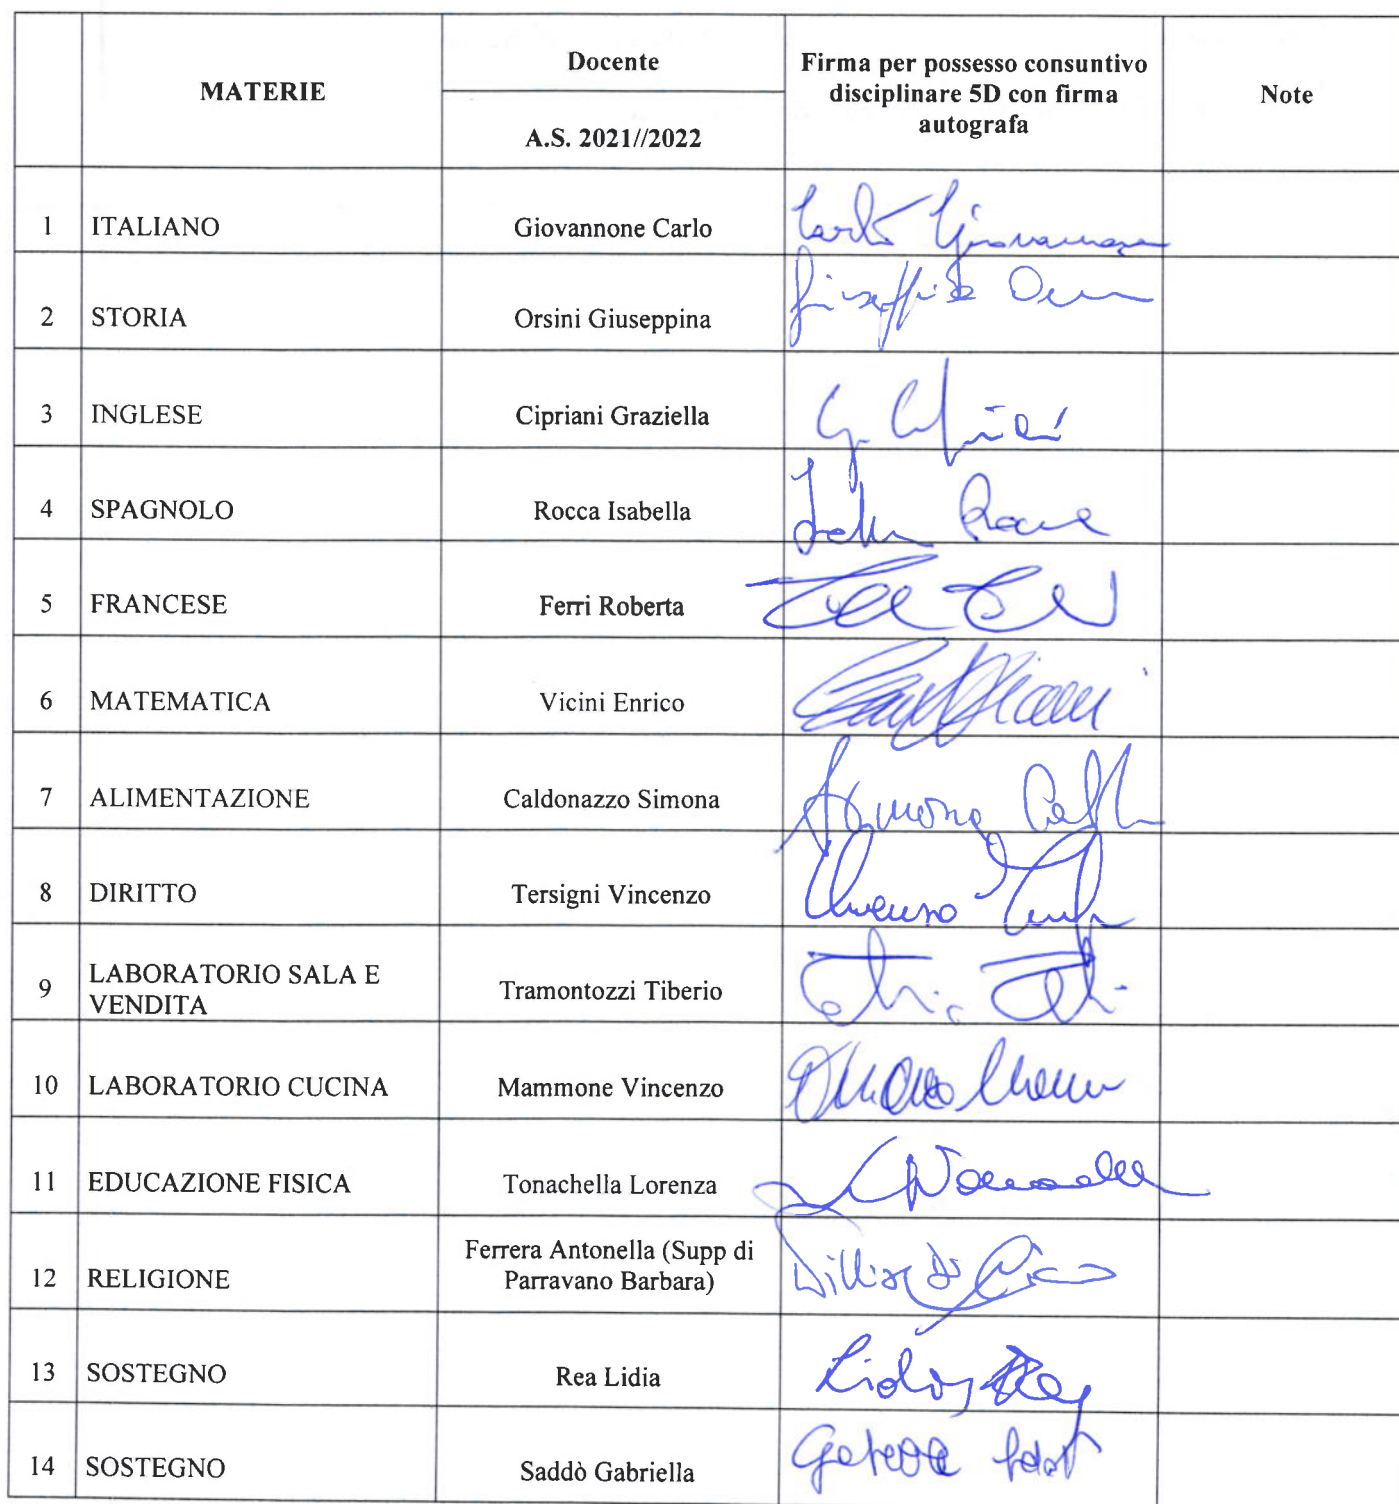 MATERIE
Docente
A.S. 2021//2022
Firma per possesso consuntivo
disciplinare 5D con firma
autografa
Note
1 ITALIANO Giovannone Carlo Carlo Giovannone
2 STORIA Orsini Giuseppina
3 INGLESE Cipriani Graziella
4 SPAGNOLO Rocca Isabella
5 FRANCESE Ferri Roberta
6 MATEMATICA Vicini Enrico
7 ALIMENTAZIONE Caldonazzo Simona Simona
8 DIRITTO Tersigni Vincenzo Vincenzo
9 LABORATORIO SALA E
VENDITA Tramontozzi Tiberio
10 LABORATORIO CUCINA Mammone Vincenzo
11 EDUCAZIONE FISICA Tonachella Lorenza
12 RELIGIONE Ferrera Antonella (Supp di
Parravano Barbara)
13 SOSTEGNO Rea Lidia Lidia Rea
14 SOSTEGNO Saddò Gabriella